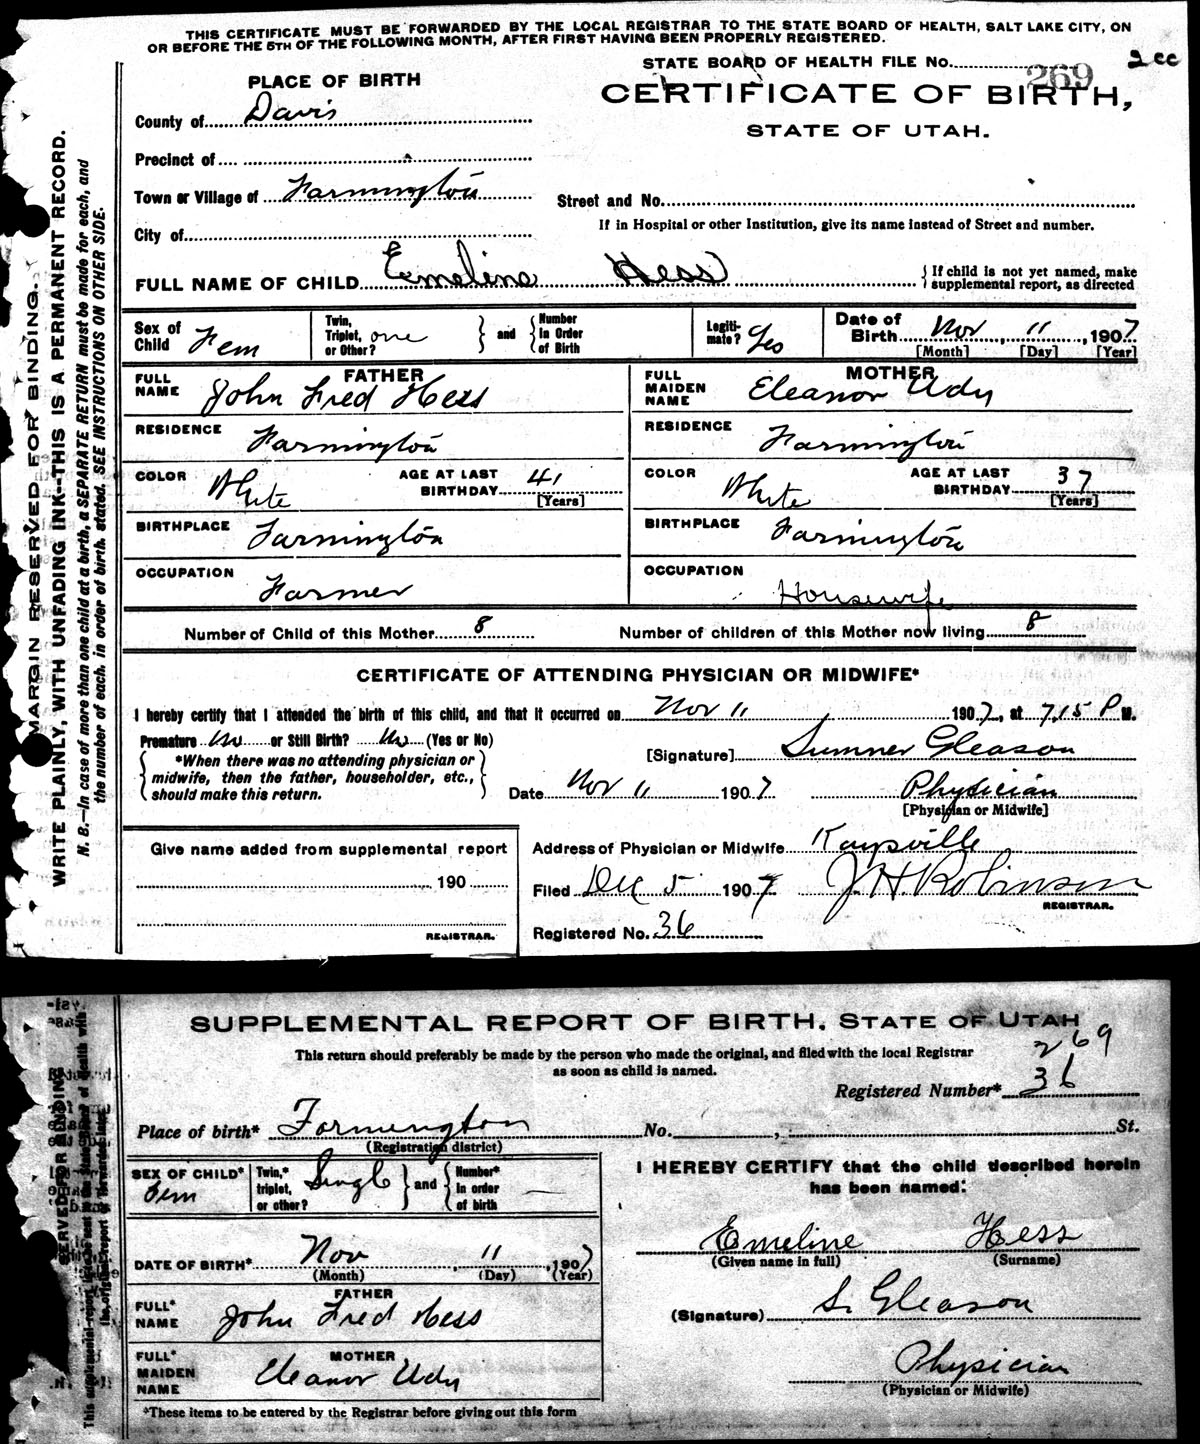 THIS CERTIFICATE MUST BE FORWARDED BY THE LOCAL REGISTRAR TO THE STATE BOARD OF HEALTH, SALT LAKE CITY, ON
OR BEFORE THE 5TH OF THE FOLLOWING MONTH, AFTER FIRST HAVING BEEN PROPERLY REGISTERED.
STATE BOARD OF HEALTH FILE NO. 269 2cc
PLACE OF BIRTH
CERTIFICATE OF BIRTH,
STATE OF UTAH.
County of Davis
Precinct of
Town or Village of Farmington
Street and No.
If in Hospital or other Institution, give its name instead of Street and number.
City of
FULL NAME OF CHILD Emeline Hess { If child is not yet named, make supplemental report, as directed
Sex of Child Fem Twin, Triplet, or Other? one } and { Number in Order of Birth Legiti- mate? Yes Date of Birth Nov, 11, 1907
[Month] [Day] [Year]
FATHER MOTHER
FULL NAME John Fred Hess FULL MAIDEN NAME Eleanor Udy
RESIDENCE Farmington RESIDENCE Farmington
COLOR White AGE AT LAST BIRTHDAY 41 [Years] COLOR White AGE AT LAST BIRTHDAY 37 [Years]
BIRTHPLACE Farmington BIRTHPLACE Farmington
OCCUPATION Farmer OCCUPATION Housewife
Number of Child of this Mother 8 Number of children of this Mother now living 8
CERTIFICATE OF ATTENDING PHYSICIAN OR MIDWIFE*
I hereby certify that I attended the birth of this child, and that it occurred on Nov 11 1907, at 7.15 P M.
Premature No or Still Birth? No (Yes or No)
[Signature] Sumner Gleason
{ *When there was no attending physician or
midwife, then the father, householder, etc.,
should make this return. }
Date Nov 11 1907 Physician
[Physician or Midwife]
Give name added from supplemental report
190
REGISTRAR.
Address of Physician or Midwife Kaysville
Filed Dec 5 1907 J. H. Robinson
REGISTRAR.
Registered No. 36
MARGIN RESERVED FOR BINDING.
WRITE PLAINLY, WITH UNFADING INK--THIS IS A PERMANENT RECORD.
N. B.—In case of more than one child at a birth, a SEPARATE RETURN must be made for each, and
the number of each, in order of birth, stated. SEE INSTRUCTIONS ON OTHER SIDE.
SUPPLEMENTAL REPORT OF BIRTH. STATE OF UTAH
This return should preferably be made by the person who made the original, and filed with the local Registrar
as soon as child is named.
269
Registered Number* 36
Place of birth* Farmington No. , St.
(Registration district)
SEX OF CHILD* Fem Twin,* triplet, or other? Single } and { Number* in order of birth —
I HEREBY CERTIFY that the child described herein
has been named:
DATE OF BIRTH* Nov, 11, 1907
(Month) (Day) (Year)
Emeline Hess
(Given name in full) (Surname)
FATHER
FULL* NAME John Fred Hess
(Signature) S. Gleason
MOTHER
FULL* MAIDEN NAME Eleanor Udy
Physician
(Physician or Midwife)
*These items to be entered by the Registrar before giving out this form